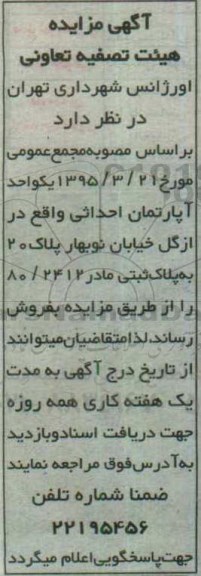 آگهی مزایده
هیئت تصفیه تعاونی
اورژانس شهرداری تهران
در نظر دارد
براساس مصوبه مجمع عمومی
مورخ ۱۳۹۵/۳/۲۱ یکواحد
آپارتمان احداثی واقع در
ازگل خیابان نوبهار پلاک ۲۰
به پلاک ثبتی مادر ۸۰/۲۴۱۲
را از طریق مزایده بفروش
رساند، لذا متقاضیان میتوانند
از تاریخ درج آگهی به مدت
یک هفته کاری همه روزه
جهت دریافت اسناد و بازدید
به آدرس فوق مراجعه نمایند
ضمنا شماره تلفن
۲۲۱۹۵۴۵۶
جهت پاسخگویی اعلام میگردد